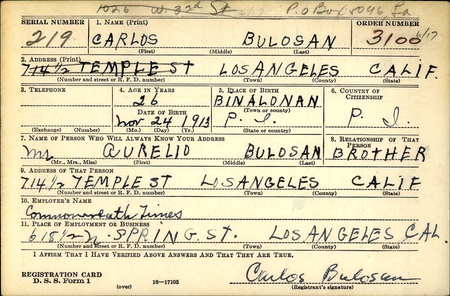 1026 W. 3rd St P.O Box
SERIAL NUMBER 1. NAME (Print) ORDER NUMBER
219 CARLOS BULOSAN 3100
(First) (Middle) (Last)
2. ADDRESS (Print)
714½ TEMPLE ST LOS ANGELES CALIF.
(Number and street or R. F. D. number) (Town) (County) (State)
3. TELEPHONE 4. AGE IN YEARS 5. PLACE OF BIRTH 6. COUNTRY OF CITIZENSHIP
26 BINALONAN
DATE OF BIRTH (Town or county)
Nov 24 1913 P. I. P. I.
(Exchange) (Number) (Mo.) (Day) (Yr.) (State or country)
7. NAME OF PERSON WHO WILL ALWAYS KNOW YOUR ADDRESS 8. RELATIONSHIP OF THAT PERSON
Mr AURELIO BULOSAN BROTHER
(Mr., Mrs., Miss) (First) (Middle) (Last)
9. ADDRESS OF THAT PERSON
714½ TEMPLE ST LOS ANGELES CALIF
(Number and street or R. F. D. number) (Town) (County) (State)
10. EMPLOYER'S NAME
Commonwealth Times
11. PLACE OF EMPLOYMENT OR BUSINESS
618½ N. SPRING ST. LOS ANGELES CAL.
(Number and street or R. F. D. number) (Town) (County) (State)
I AFFIRM THAT I HAVE VERIFIED ABOVE ANSWERS AND THAT THEY ARE TRUE.
REGISTRATION CARD
D. S. S. Form 1 16—17105 Carlos Bulosan
(Registrant's signature)